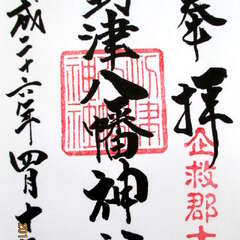 奉拝
企救郡
到津八幡神社
成二十六年四月十